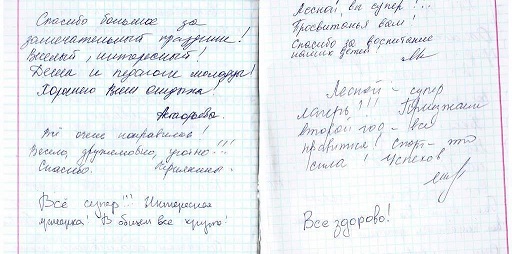 Спасибо большое за
замечательный праздник!
Весёлый, интересный!
Дети и педагоги молодцы!
Хорошего Вам отдыха!
Всё очень понравилось!
Весело, дружелюбно, уютно!!!
Спасибо.
Всё супер!!! Интересная
ярмарка! В общем все круто!
Лесной, вы супер!..
Процветания вам!
Спасибо за воспитание
наших детей
Лесной - супер
лагерь!!! Приезжаем
второй год - всё
нравится! Спорт - это
сила! Успехов
Все здорово!